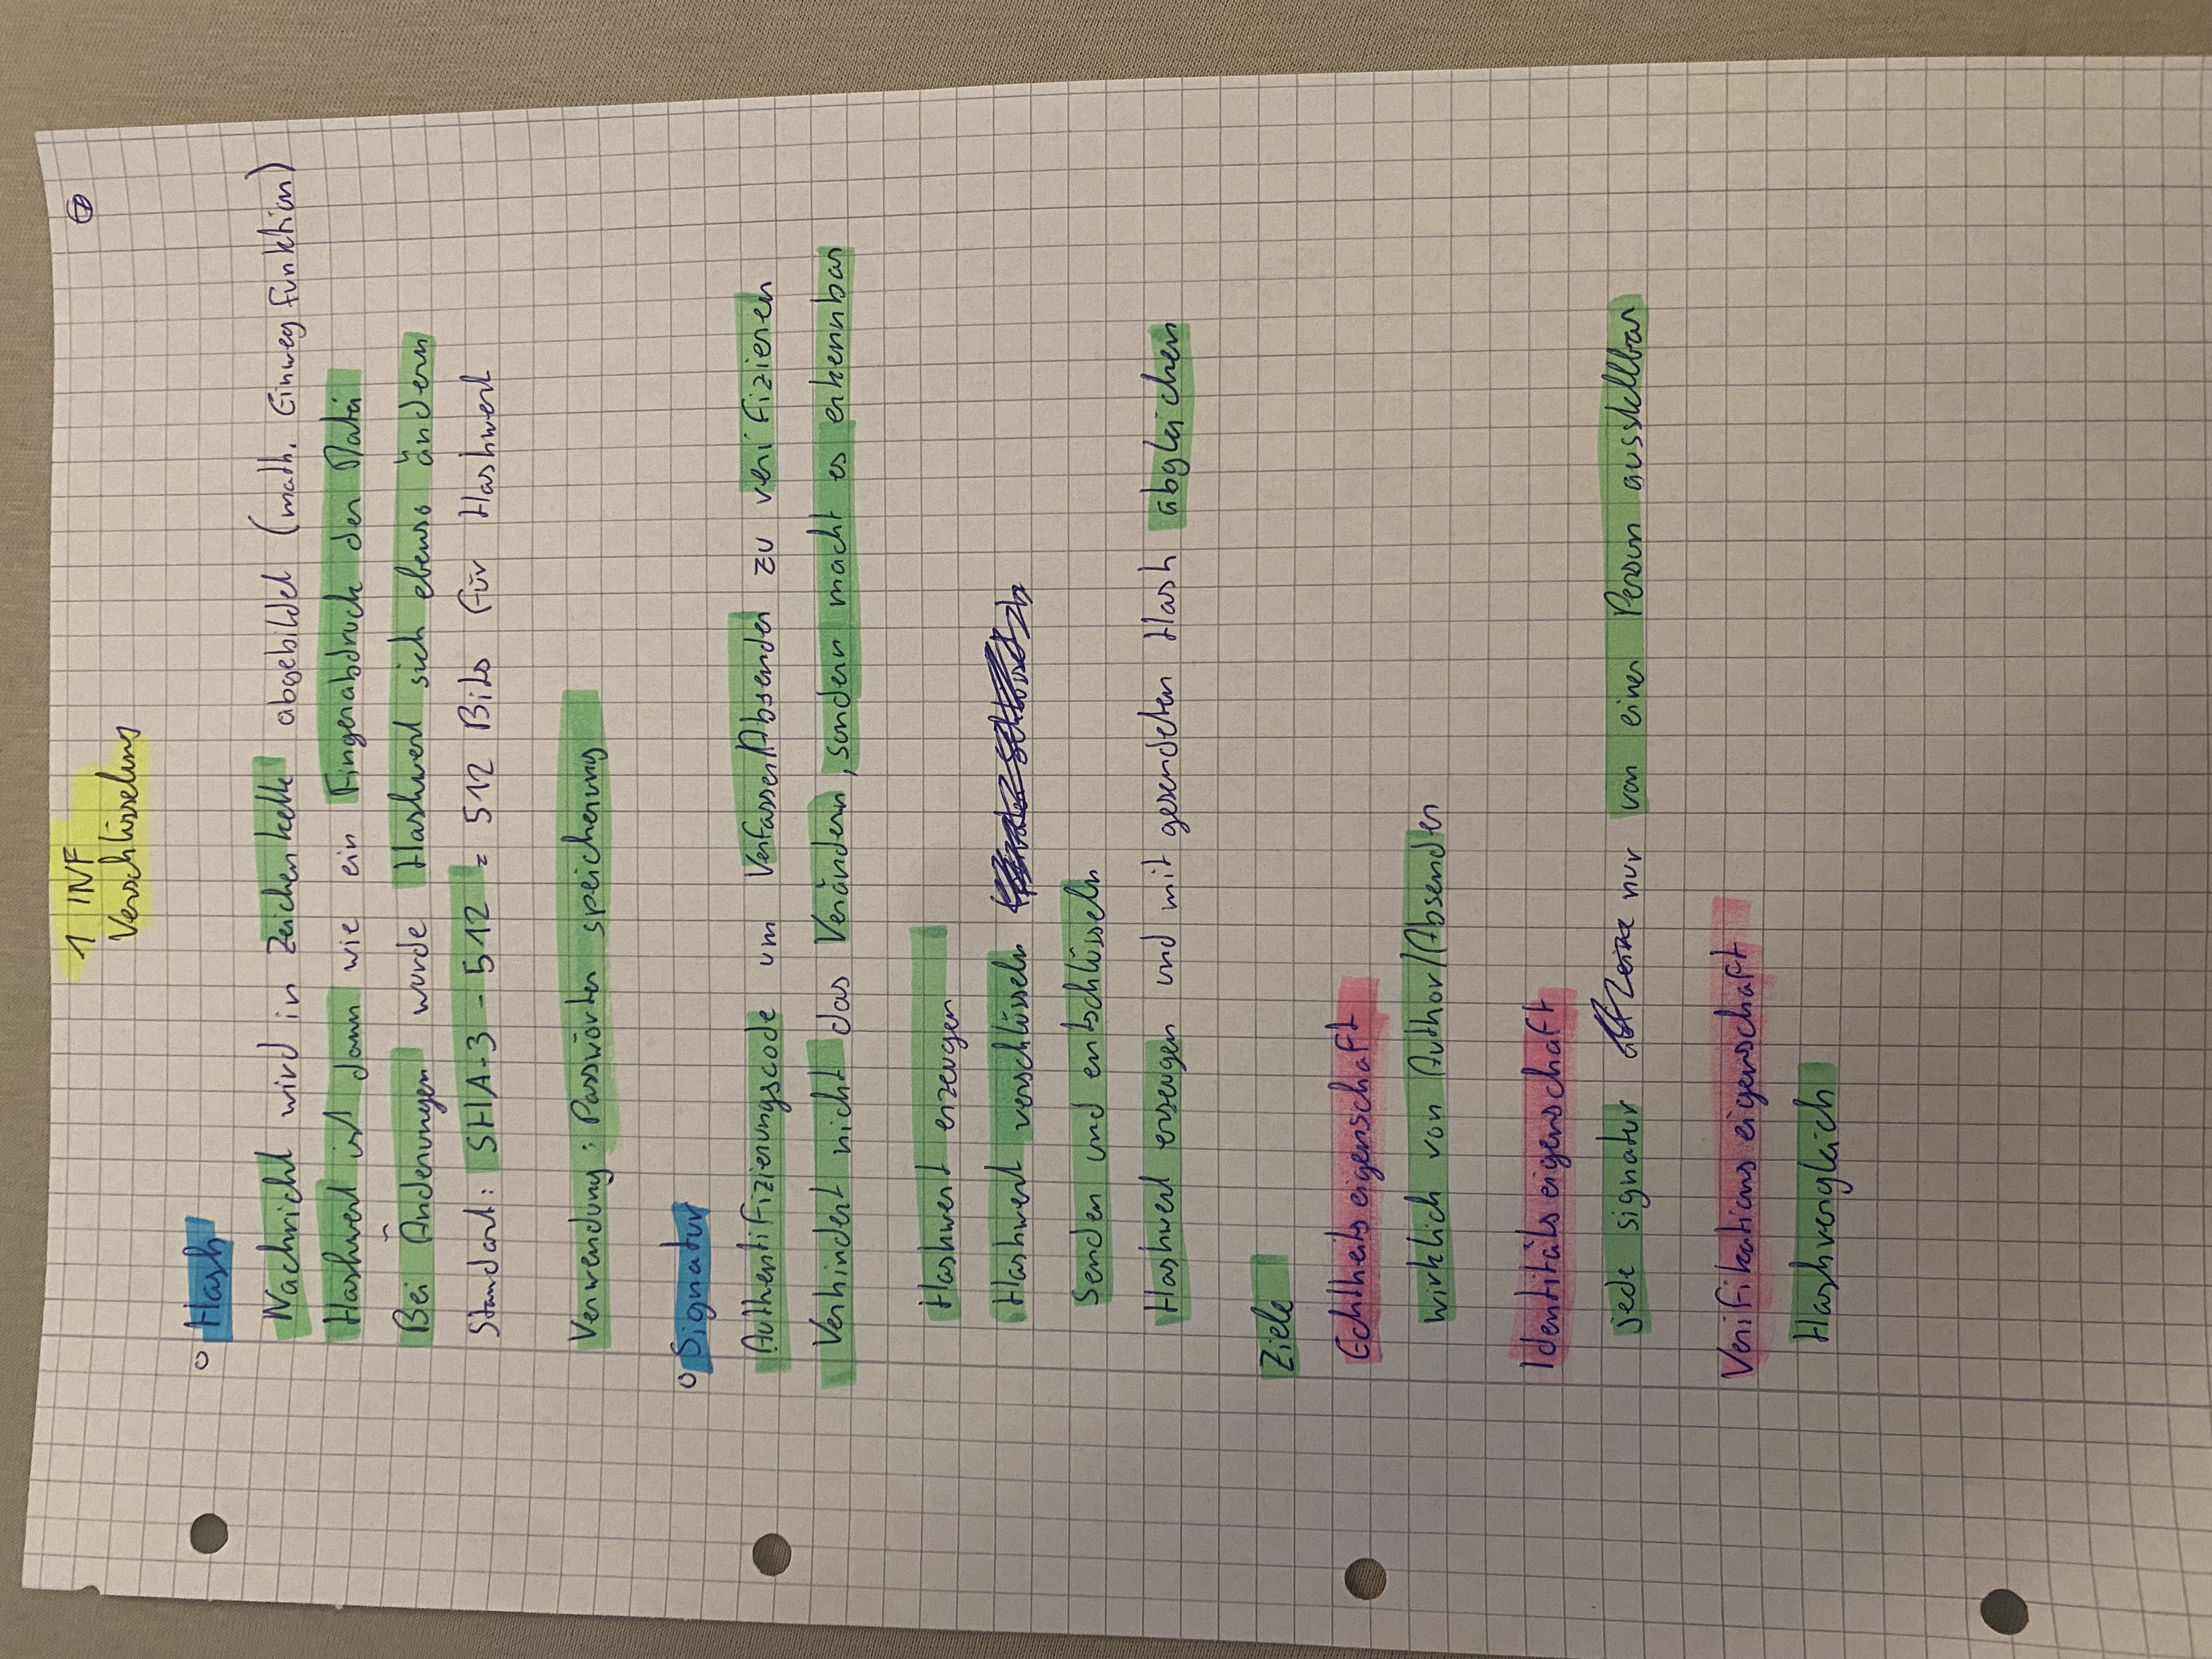 1 INF
Verschlüsselung
Hash
Nachricht wird in Zeichenkette abgebildet (math. Einwegfunktion)
Hashwert ist dann wie ein Fingerabdruck der Datei
Bei Änderungen wurde Hashwert sich ebenso ändern
Standart: SHA-3-512 = 512 Bits für Hashwert
Verwendung: Passwörter speicherung
Signatur
Authentifizierungscode um Verfasser/Absender zu verifizieren
Verhindert nicht das Verändern, sondern macht es erkennbar
Hashwert erzeugen
Hashwert verschlüsseln
Senden und entschlüsseln
Hashwert erzeugen und mit gesendeten Hash abgleichen
Ziele
Echtheitseigenschaft
wirklich von Author/Absender
Identitätseigenschaft
jede signatur nur von einer Person ausstellbar
Verifikationseigenschaft
Hashvergleich